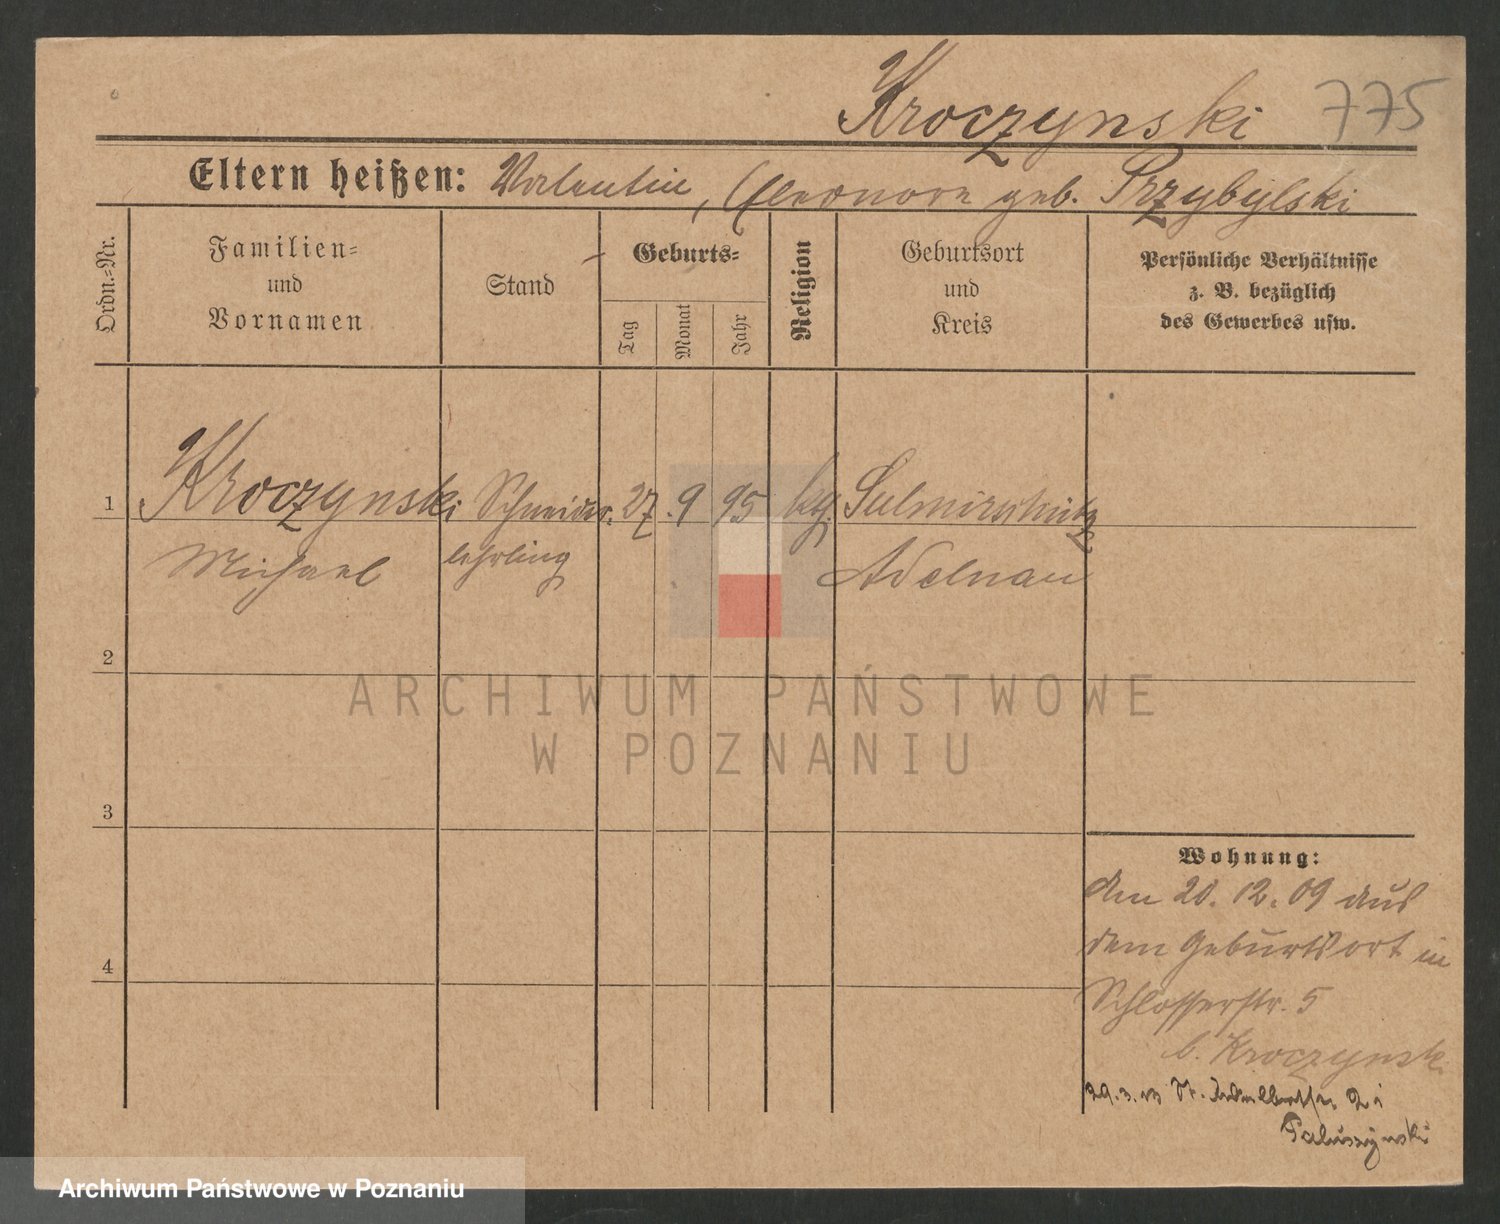 Kroczynski 775
Eltern heißen: Valentin, Eleonore geb. Przybylski
Ordn.=Nr.
Familien=
und
Vornamen
Stand
Geburts=
Tag
Monat
Jahr
Religion
Geburtsort
und
Kreis
Persönliche Verhältnisse
z. B. bezüglich
des Gewerbes usw.
1 Kroczynski Schneider 27. 9 95 ktg. Sulmirschütz
Michael lehrling Adelnau
2
3
4
ARCHIWUM PAŃSTWOWE
W POZNANIU
Wohnung:
Am 20. 12. 09 aus
dem Geburtsort in
Schlosserstr. 5
b. Kroczynski
29.3.13 St. Adalbertstr. 2 i
Paluszynski
Archiwum Państwowe w Poznaniu